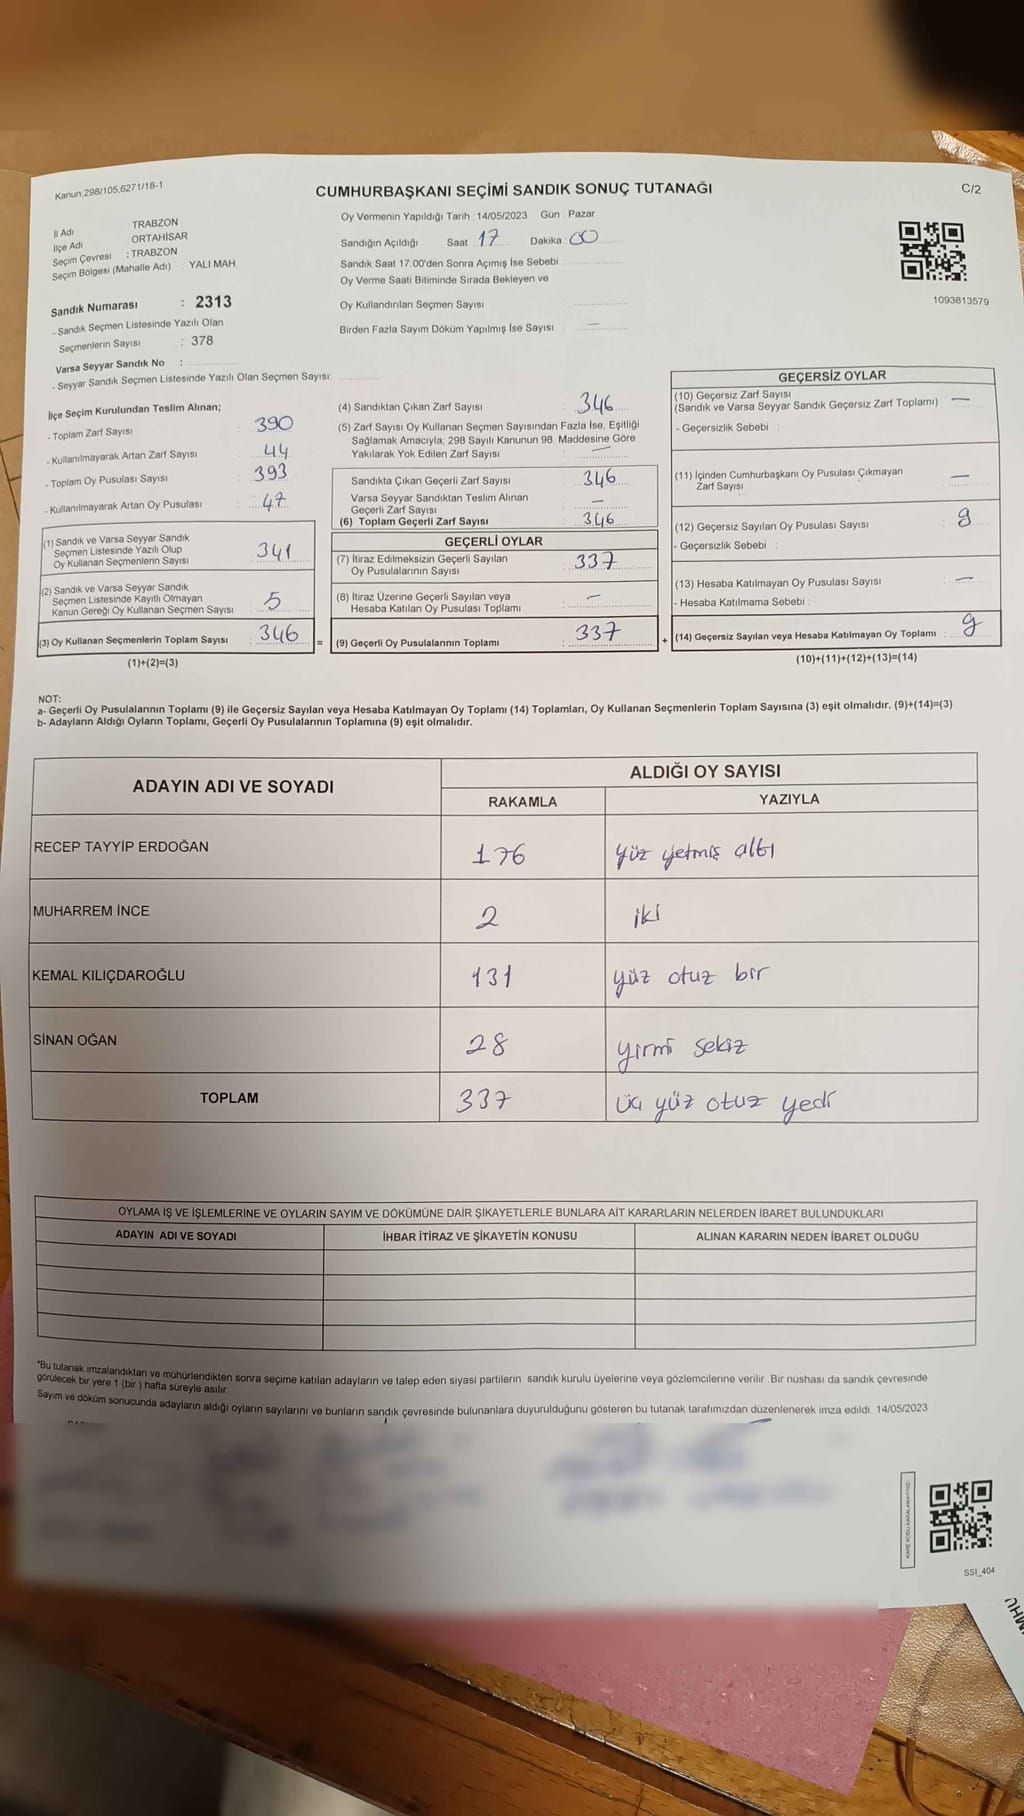 Kanun:298/105,6271/16-1
CUMHURBAŞKANI SEÇİMİ SANDIK SONUÇ TUTANAĞI
C/2
İl Adı TRABZON
İlçe Adı ORTAHİSAR
Seçim Çevresi : TRABZON
Seçim Bölgesi (Mahalle Adı) YALI MAH.
Sandık Numarası : 2313
- Sandık Seçmen Listesinde Yazılı Olan
Seçmenlerin Sayısı : 378
Varsa Seyyar Sandık No :
- Seyyar Sandık Seçmen Listesinde Yazılı Olan Seçmen Sayısı:
Oy Vermenin Yapıldığı Tarih : 14/05/2023 Gün : Pazar
Sandığın Açıldığı Saat : 17 Dakika : 00
Sandık Saat 17.00'den Sonra Açımış İse Sebebi
Oy Verme Saati Bitiminde Sırada Bekleyen ve
Oy Kullandırılan Seçmen Sayısı :
Birden Fazla Sayım Döküm Yapılmış İse Sayısı : —
1093813579
İlçe Seçim Kurulundan Teslim Alınan;
- Toplam Zarf Sayısı : 390
- Kullanılmayarak Artan Zarf Sayısı : 44
- Toplam Oy Pusulası Sayısı : 393
- Kullanılmayarak Artan Oy Pusulası : 47
(1) Sandık ve Varsa Seyyar Sandık
Seçmen Listesinde Yazılı Olup
Oy Kullanan Seçmenlerin Sayısı : 341
(2) Sandık ve Varsa Seyyar Sandık
Seçmen Listesinde Kayıtlı Olmayan
Kanun Gereği Oy Kullanan Seçmen Sayısı : 5
(3) Oy Kullanan Seçmenlerin Toplam Sayısı : 346
(1)+(2)=(3)
=
(4) Sandıktan Çıkan Zarf Sayısı : 346
(5) Zarf Sayısı Oy Kullanan Seçmen Sayısından Fazla İse, Eşitliği
Sağlamak Amacıyla; 298 Sayılı Kanunun 98. Maddesine Göre
Yakılarak Yok Edilen Zarf Sayısı : —
Sandıkta Çıkan Geçerli Zarf Sayısı : 346
Varsa Seyyar Sandıktan Teslim Alınan
Geçerli Zarf Sayısı : —
(6) Toplam Geçerli Zarf Sayısı : 346
GEÇERLİ OYLAR
(7) İtiraz Edilmeksizin Geçerli Sayılan
Oy Pusulalarının Sayısı : 337
(8) İtiraz Üzerine Geçerli Sayılan veya
Hesaba Katılan Oy Pusulası Toplamı : —
(9) Geçerli Oy Pusulalarının Toplamı : 337
+
GEÇERSİZ OYLAR
(10) Geçersiz Zarf Sayısı
(Sandık ve Varsa Seyyar Sandık Geçersiz Zarf Toplamı) : —
- Geçersizlik Sebebi :
(11) İçinden Cumhurbaşkanı Oy Pusulası Çıkmayan
Zarf Sayısı : —
(12) Geçersiz Sayılan Oy Pusulası Sayısı : 9
- Geçersizlik Sebebi :
(13) Hesaba Katılmayan Oy Pusulası Sayısı : —
- Hesaba Katılmama Sebebi :
(14) Geçersiz Sayılan veya Hesaba Katılmayan Oy Toplamı : 9
(10)+(11)+(12)+(13)=(14)
NOT:
a- Geçerli Oy Pusulalarının Toplamı (9) ile Geçersiz Sayılan veya Hesaba Katılmayan Oy Toplamı (14) Toplamları, Oy Kullanan Seçmenlerin Toplam Sayısına (3) eşit olmalıdır. (9)+(14)=(3)
b- Adayların Aldığı Oyların Toplamı, Geçerli Oy Pusulalarının Toplamına (9) eşit olmalıdır.
ADAYIN ADI VE SOYADI
ALDIĞI OY SAYISI
RAKAMLA YAZIYLA
RECEP TAYYİP ERDOĞAN 176 yüz yetmiş altı
MUHARREM İNCE 2 iki
KEMAL KILIÇDAROĞLU 131 yüz otuz bir
SİNAN OĞAN 28 yirmi sekiz
TOPLAM 337 üç yüz otuz yedi
OYLAMA İŞ VE İŞLEMLERİNE VE OYLARIN SAYIM VE DÖKÜMÜNE DAİR ŞİKAYETLERLE BUNLARA AİT KARARLARIN NELERDEN İBARET BULUNDUKLARI
ADAYIN ADI VE SOYADI İHBAR İTİRAZ VE ŞİKAYETİN KONUSU ALINAN KARARIN NEDEN İBARET OLDUĞU
*Bu tutanak imzalandıktan ve mühürlendikten sonra seçime katılan adayların ve talep eden siyasi partilerin sandık kurulu üyelerine veya gözlemcilerine verilir. Bir nüshası da sandık çevresinde
görülecek bir yere 1 (bir) hafta süreyle asılır.
Sayım ve döküm sonucunda adayların aldığı oyların sayılarını ve bunların sandık çevresinde bulunanlara duyurulduğunu gösteren bu tutanak tarafımızdan düzenlenerek imza edildi. 14/05/2023
SSI_404